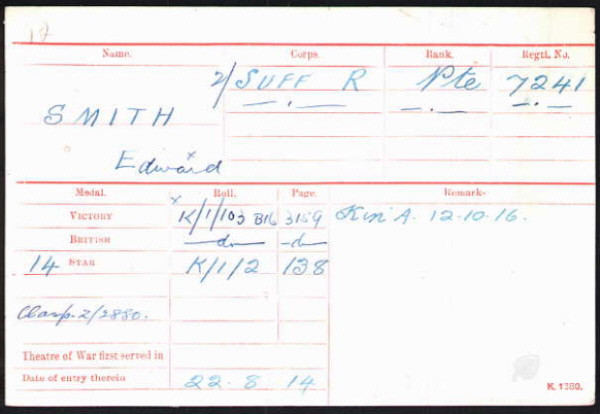 Name. Corps. Rank. Regtl. No.
2/ SUFF R Pte 7241
SMITH
Edward
Medal. Roll. Page. Remarks
VICTORY K/1/103 B16 3159 Kin A. 12-10-16.
BRITISH —do— -do-
14 STAR K/1/2 138
Clasp Z/2880.
Theatre of War first served in
Date of entry therein 22. 8. 14
K. 1380.